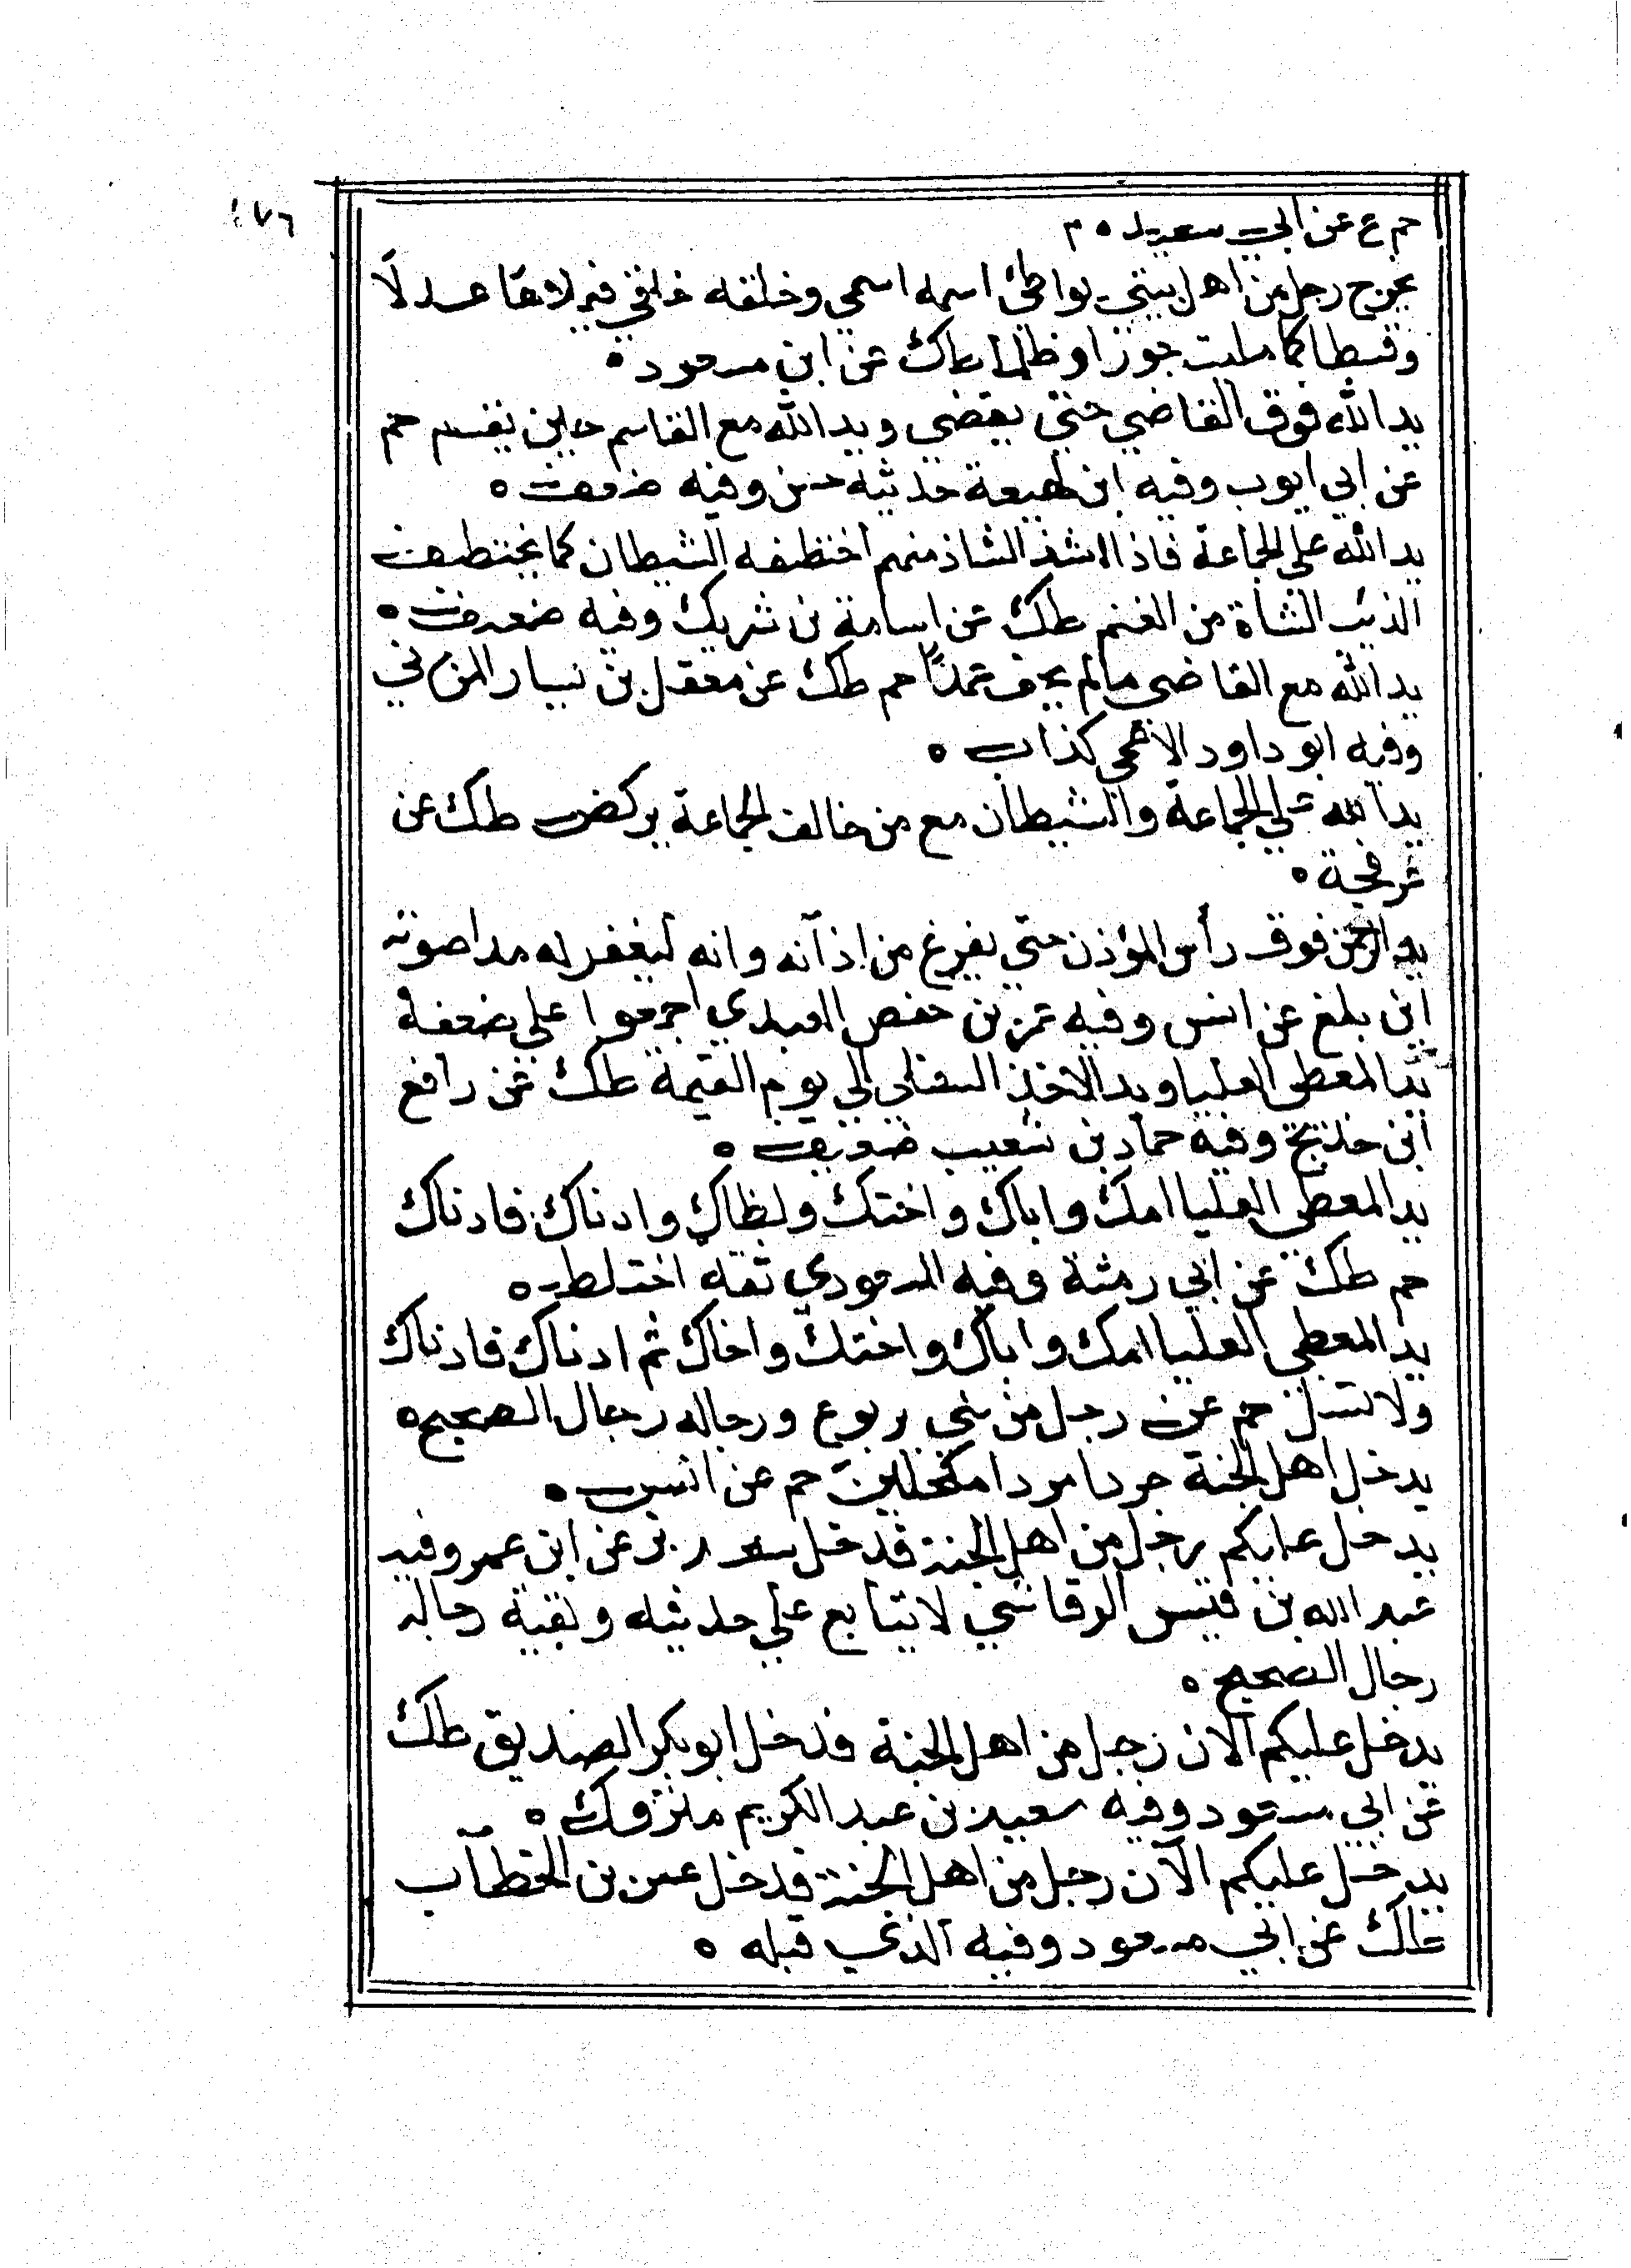 حم ع عن ابي سعيد ه م
يخرج رجل من اهل بيتي يواطئ اسمه اسمي وخلقه خلقي فيملاها عدلا
وقسطا كما ملت جورا وظلما طك عن ابن مسعود ه
يد الله فوق القاضي حتي يقضي ويد الله مع القاسم حين يقسم حم
عن ابي ايوب وفيه ابن لهيعة حديثه حسن وفيه ضعف ه
يد الله علي الجماعة فاذا شذ الشاذ منهم اختطفه الشيطان كما يختطف
الذيب الشاة من الغنم طك عن اسامة بن شريك وفيه ضعيف ه
يد الله مع القاضي مالم يحف عمدًا حم طك عن معقل بن يسار المزني
وفيه ابو داود الاعمي كذاب ه
يد الله علي الجماعة والشيطان مع من خالف الجماعة يركض طك عن
عرفجة ه
يد الرحمن فوق رأس المؤذن حتي يفرغ من اذآنه وانه ليغفر له مدا صوته
اين بلغ عن انس وفيه عمر بن حفص العبدي اجمعوا علي ضعفه
يد المعطي العليا ويد الاخذ السفلي الي يوم القيمة طك عن رافع
ابن خديج وفيه حماد بن شعيب ضعيف ه
يد المعطي العليا امك واباك واختك ولظاك وادناك فادناك
حم طك عن ابي رمثة وفيه المسعودي ثقه اختلط ه
يد المعطي العليا امك واباك واختك واخاك ثم ادناك فادناك
ولا تسئل حم عن رجل من بني يربوع ورجاله رجال الصحيح ه
يدخل اهل الجنة جردا مردا مكحلين حم عن انس ه
يدخل عليكم رجل من اهل الجنة فدخل سعد ر بز عن ابن عمر وفيه
عبد الله بن قيس الرقاشي لا يتابع علي حديثه وبقية رجاله
رجال الصحيح ه
يدخل عليكم الان رجل من اهل الجنة فدخل ابو بكر الصديق طك
عن ابي مسعود وفيه سعيد بن عبد الكريم متروك ه
يدخل عليكم الآن رجل من اهل الجنة فدخل عمر بن الخطآب
طك عن ابي مسعود وفيه الذي قبله ه